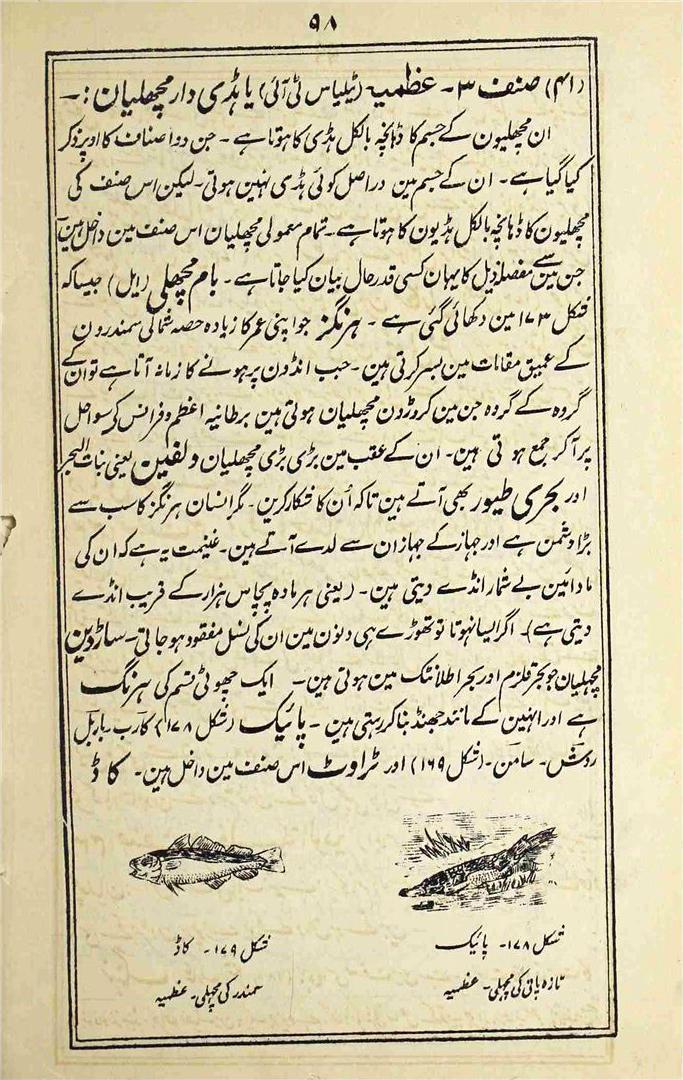 ۹۸
(۴۱) صنف ۳ ۔ عظمیہ (ٹیلیاس ٹی آئی) یا ہڈی دار مچھلیان :۔
ان مچھلیون کے جسم کا ڈہانچہ بالکل ہڈی کا ہوتا ہے ۔ جن دو اصناف کا اوپر ذکر
کیا گیا ہے ۔ ان کے جسم مین دراصل کوئی ہڈی نہین ہوتی ۔ لیکن اس صنف کی
مچھلیون کا ڈہانچہ بالکل ہڈیون کا ہوتا ہے ۔ تمام معمولی مچھلیان اس صنف مین داخل ہین
جن مین سے مفصلہ ذیل کا یہان کسی قدر حال بیان کیا جاتا ہے ۔ بام مچھلی (ایل) جیسا کہ
شکل ۱۷۳ مین دکھائی گئی ہے ۔ ہرنگز جو اپنی عمر کا زیادہ حصہ شمالی سمندرون
کے عمیق مقامات مین بسر کرتی ہین ۔ جب انڈون پر ہونے کا زمانہ آتا ہے تو ان کے
گروہ کے گروہ جن مین کروڑون مچھلیان ہوتی ہین برطانیہ اعظم و فرانس کی سواحل
پر آکر جمع ہوتی ہین ۔ ان کے عقب مین بڑی بڑی مچھلیان ولفین یعنی بنات البحر
اور بحری طیور بھی آتے ہین تاکہ اُن کا شکار کرین ۔ مگر انسان ہرنگز کا سب سے
بڑا دشمن ہے اور جہاز کے جہاز ان سے لدے آتے ہین ۔ غنیمت یہ ہے کہ ان کی
مادائین بے شمار انڈے دیتی ہین ۔ (یعنی ہر مادہ پچاس ہزار کے قریب انڈے
دیتی ہے) ۔ اگر ایسا نہوتا تو تھوڑے ہی دنون مین ان کی نسل مفقود ہو جاتی ۔ ساڑدین
مچہلیان جو بحر قلزم اور بحر اطلانٹک مین ہوتی ہین ۔ ایک چھوٹی قسم کی ہرنگ
ہے اور انہین کے مانند جھنڈ بنا کر رہتی ہین ۔ پائیک (شکل ۱۷۸) کارپ ۔ باربل
روش ۔ سامن ۔ (شکل ۱۶۹) اور ٹراوٹ اس صنف مین داخل ہین ۔ کاڈ
شکل ۱۷۸ ۔ پائیک
تازہ پانی کی مچہلی ۔ عظمیہ
شکل ۱۷۹ ۔ کاڈ
سمندر کی مچہلی ۔ عظمیہ